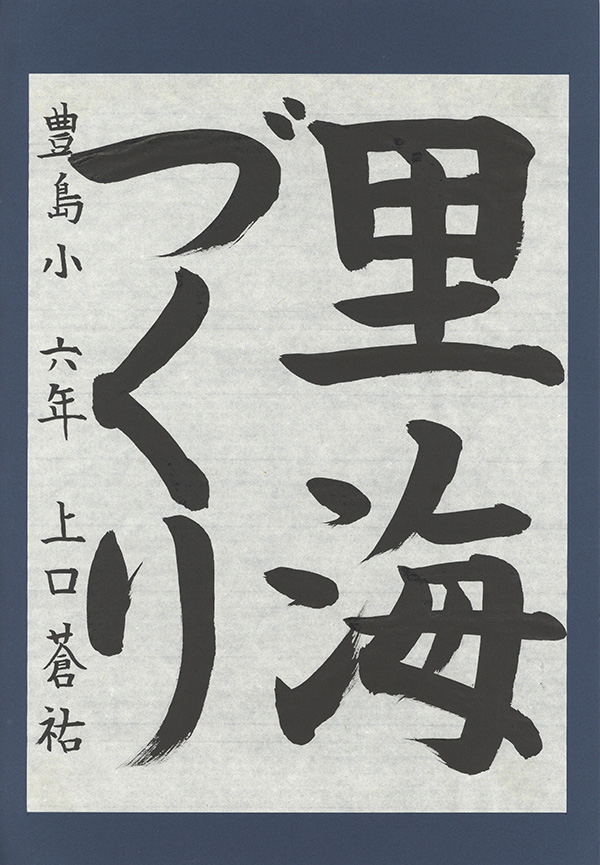 里海
づくり
豊島小 六年 上口蒼祐